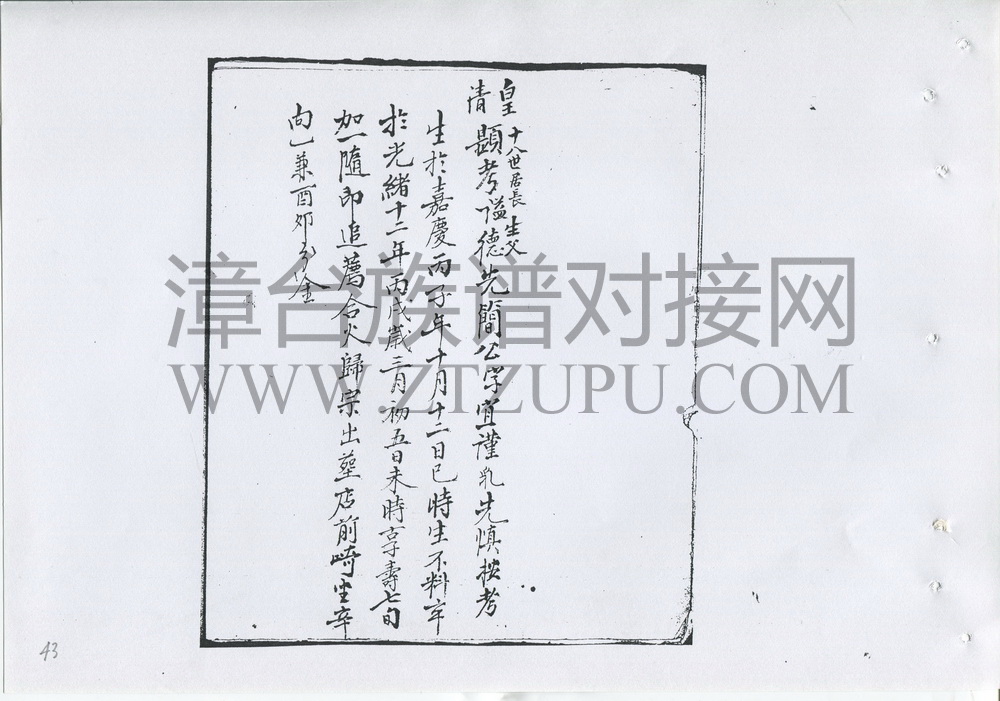 皇 十八世居長 生父
清 顯考謚德先簡公学宜謹乳先慎按考
生於嘉慶丙子年十月十二日巳時生不料卒
於光緒十二年丙戌歲三月初五日未時享壽七旬
加一隨即追薦合火歸宗出塟店前崎坐辛
向乙兼酉卯分金
漳台族谱对接网
WWW.ZTZUPU.COM
43